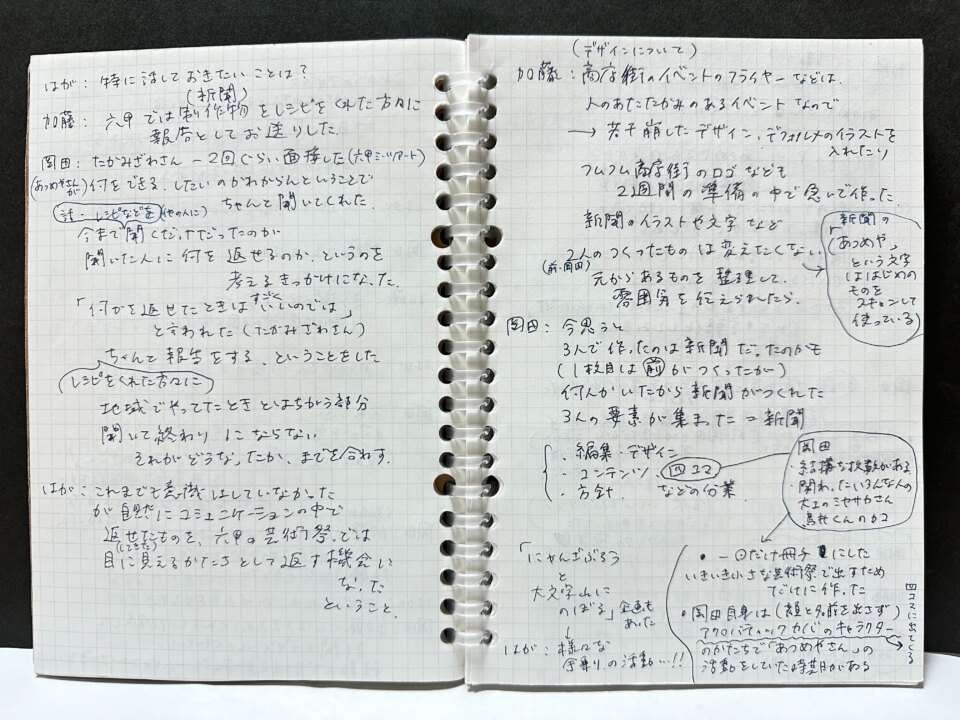 はが：特に話しておきたいことは？
(新聞)
加藤：六甲では制作物をレシピをくれた方々に
報告としてお送りした.
岡田：たかみざわさん － 2回ぐらい面接した(六甲ミーツアート)
(あつめやさんが)何をできる、したいのかわからんということで
ちゃんと聞いてくれた.
話・レシピなどを(他の人に)
今まで聞くだけだったのが
聞いた人に何を返せるのか、というのを
考えるきっかけになった.
「何かを返せたときはすごくいいのでは」
と言われた(たかみざわさん)
ちゃんと報告をする、ということをした
レシピをくれた方々に
地域でやってたときとはちがう部分
聞いて終わりにならない
それがどうなったか、までを合わす.
はが：これまでも意識はしていなかった
が自然にコミュニケーションの中で
返せたものを、六甲の芸術祭では
(してきた)
目に見えるかたちとして返す機会に
なった
ということ.
(デザインについて)
加藤：商店街のイベントのフライヤーなどは.
人のあたたかみのあるイベントなので
→ 若干崩したデザイン、デフォルメのイラストを
入れたり
フムフム商店街のロゴなども
2週間の準備の中で急いで作った.
新聞のイラストや文字など
2人のつくったものは変えたくない
(前・岡田)
元からあるものを整理して、
雰囲気を伝えられたら.
新聞の
「あつめや」
という文字
ははじめの
ものを
スキャンして
使っている
岡田：今思うと
3人で作ったのは新聞だったのかも
(1枚目は前がつくったが)
何人かいたから新聞がつくれた
3人の要素が集まった＝新聞
・編集・デザイン
・コンテンツ、四コマ
・方針. などの分業
岡田
・結構な枚数がある
・関わったいろんな人の
大工のミヤサカさん
鳥井くんの4コマ
・一回だけ冊子にした
いきいき小さな芸術祭で出すため
だけに作った
・岡田自身は(顔と名前を出さず)
アクロバティックカバのキャラクター
のかたちで「あつめやさん」の
活動をしていた時期がある
四コマに出てくる
「にゃんざぶろう
と
大文字山に
のぼる」企画も
あった
↓
はが：様々な
手乗りの活動…!!